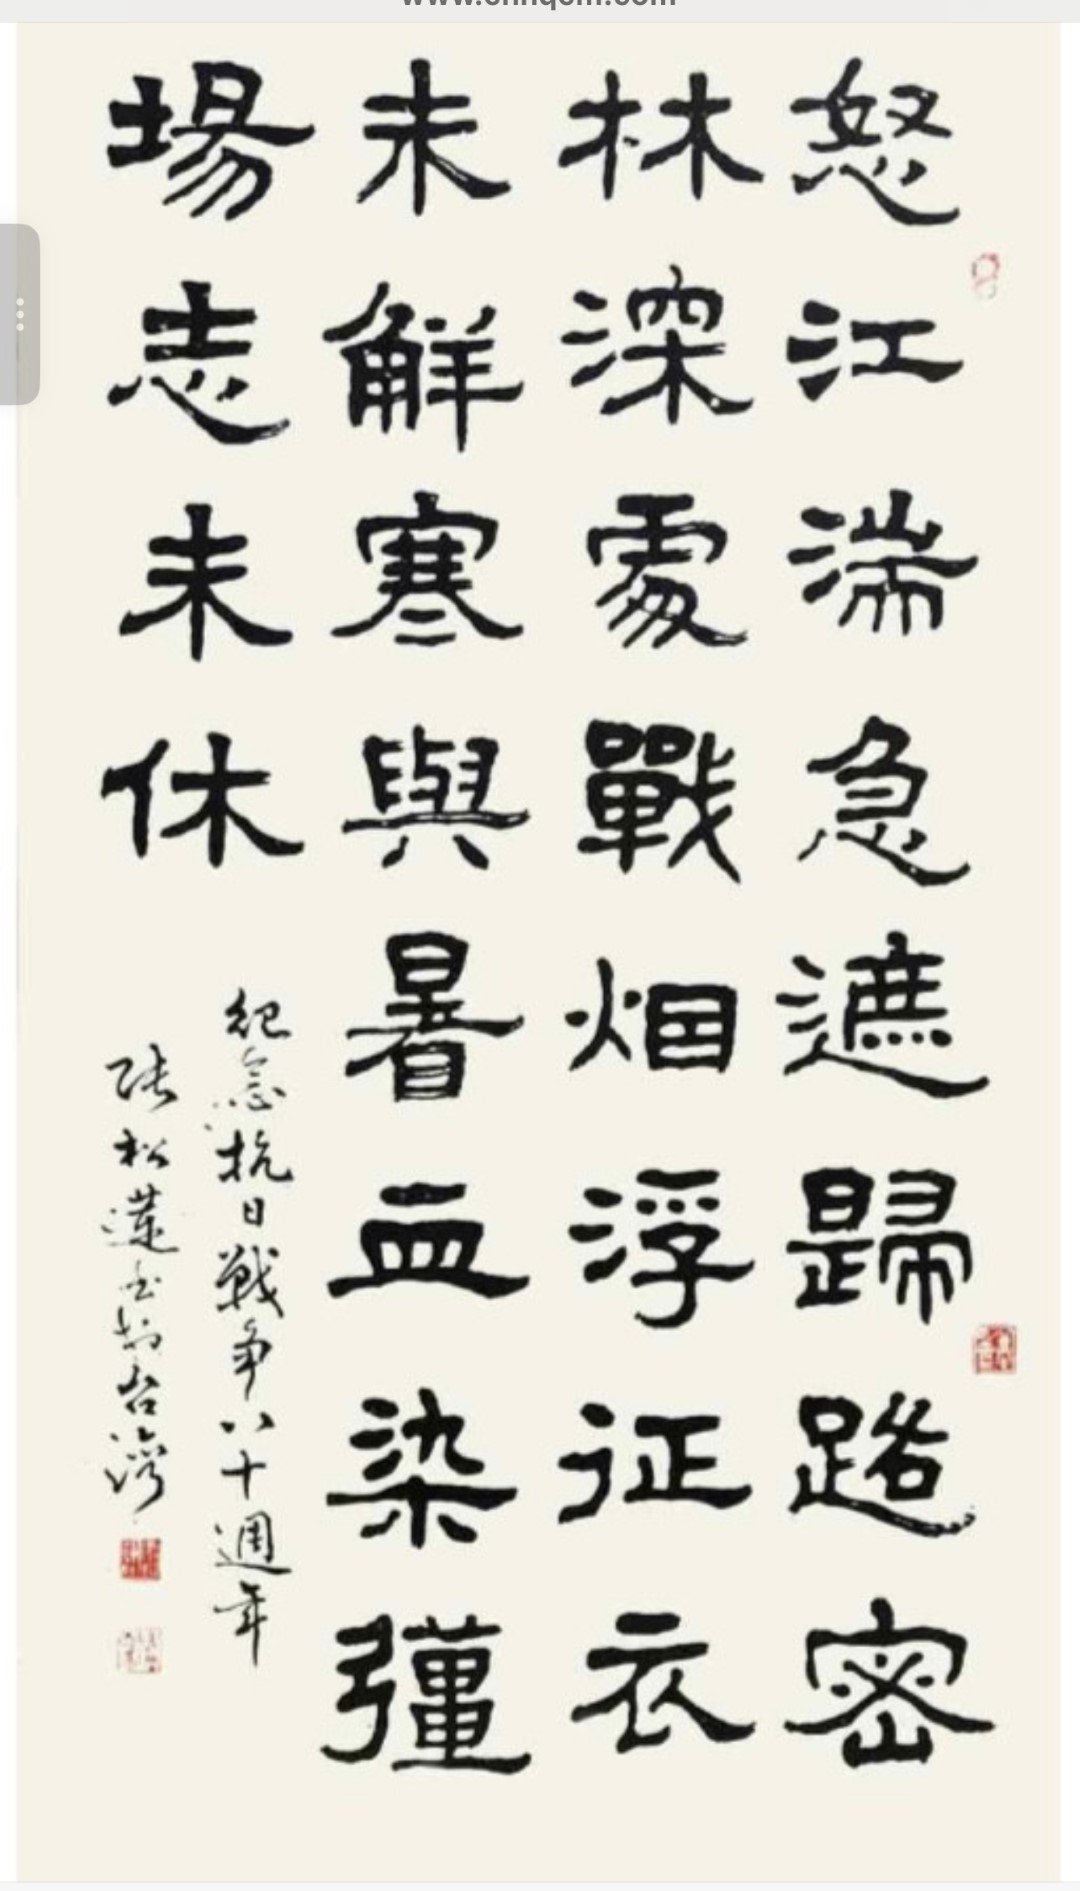 怒江湍急遮歸路密
林深處戰烟浮征衣
未解寒與暑血染彊
場志未休
紀念抗日戰争八十週年
張松蓮書於台灣